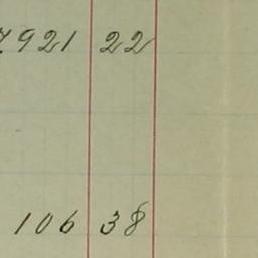 7921 22
106 38